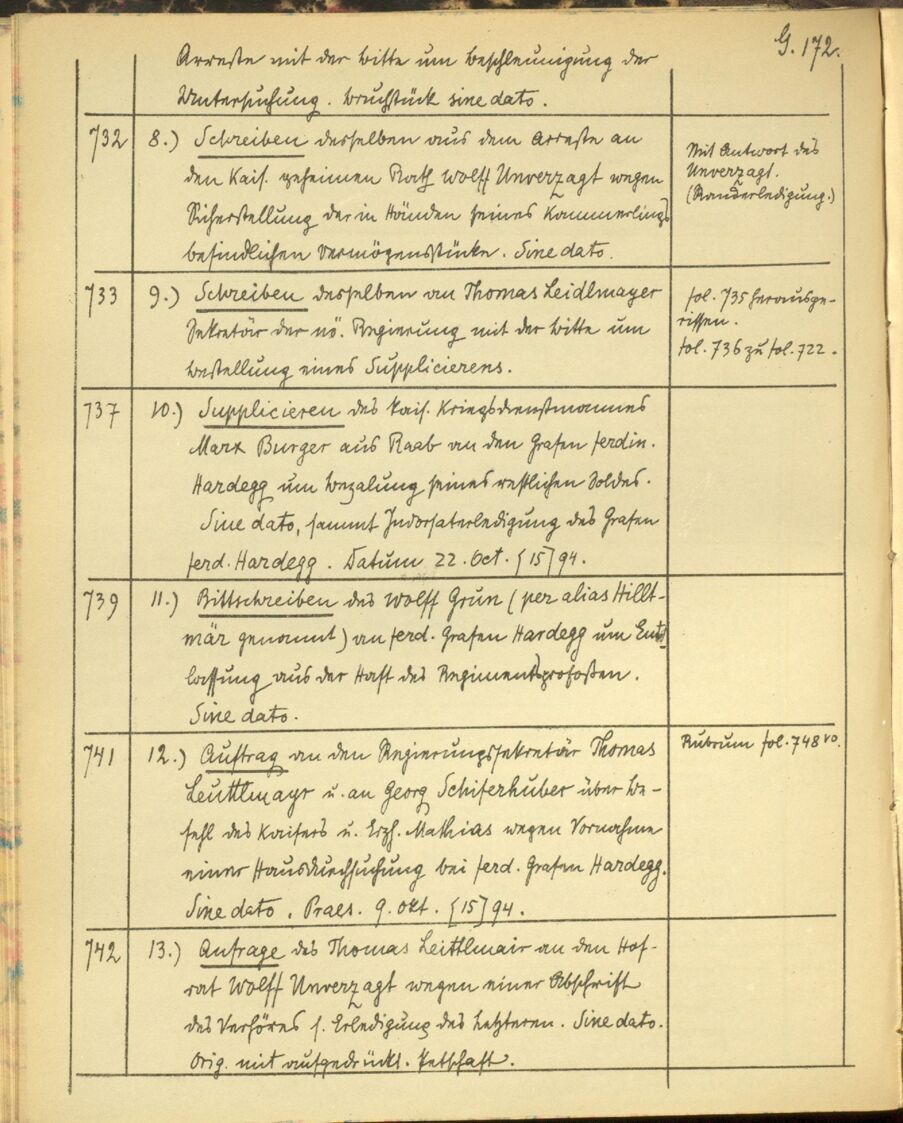 G. 172.
Arreste mit der Bitte um Beschleunigung der
Untersuchung. Bruchstück sine dato.
732 8.) Schreiben desselben aus dem Arreste an
den Kais. geheimen Rath Wolff Unverzagt wegen
Sicherstellung der in Händen seines Kammerlings
befindlichen Vermögensstücke. Sine dato.
Mit Antwort des
Unverzagt.
(Randerledigung.)
733 9.) Schreiben desselben an Thomas Leidlmayer
Sekretär der nö. Regierung mit der Bitte um
Bestellung eines Supplicierens.
fol. 735 herausge-
rissen.
fol. 736 zu fol. 722.
737 10.) Supplicieren des kais. Kriegsdienstmannes
Marx Burger aus Raab an den Grafen Ferdin.
Hardegg um Bezalung seines restlichen Soldes.
Sine dato, sammt Indorsaterledigung des Grafen
Ferd. Hardegg. Datum 22. Oct. [15]94.
739 11.) Bittschreiben des Wolff Grün (per alias Hillt-
mär genannt) an Ferd. Grafen Hardegg um Ent-
lassung aus der Haft des Regimentsprofoßen.
Sine dato.
741 12.) Auftrag an den Regierungssekretär Thomas
Leuttlmayr u. an Georg Schiferhuber über Be-
fehl des Kaisers u. Erzh. Mathias wegen Vornahme
einer Hausdurchsuchung bei Ferd. Grafen Hardegg.
Sine dato. Praes. 9. Okt. [15]94.
Rubrum fol. 748 vo.
742 13.) Anfrage des Thomas Leittlmair an den Hof-
rat Wolff Unverzagt wegen einer Abschrift
des Verhöres s. Erledigung des Letzteren. Sine dato.
Orig. mit aufgedrückt. Petschaft.